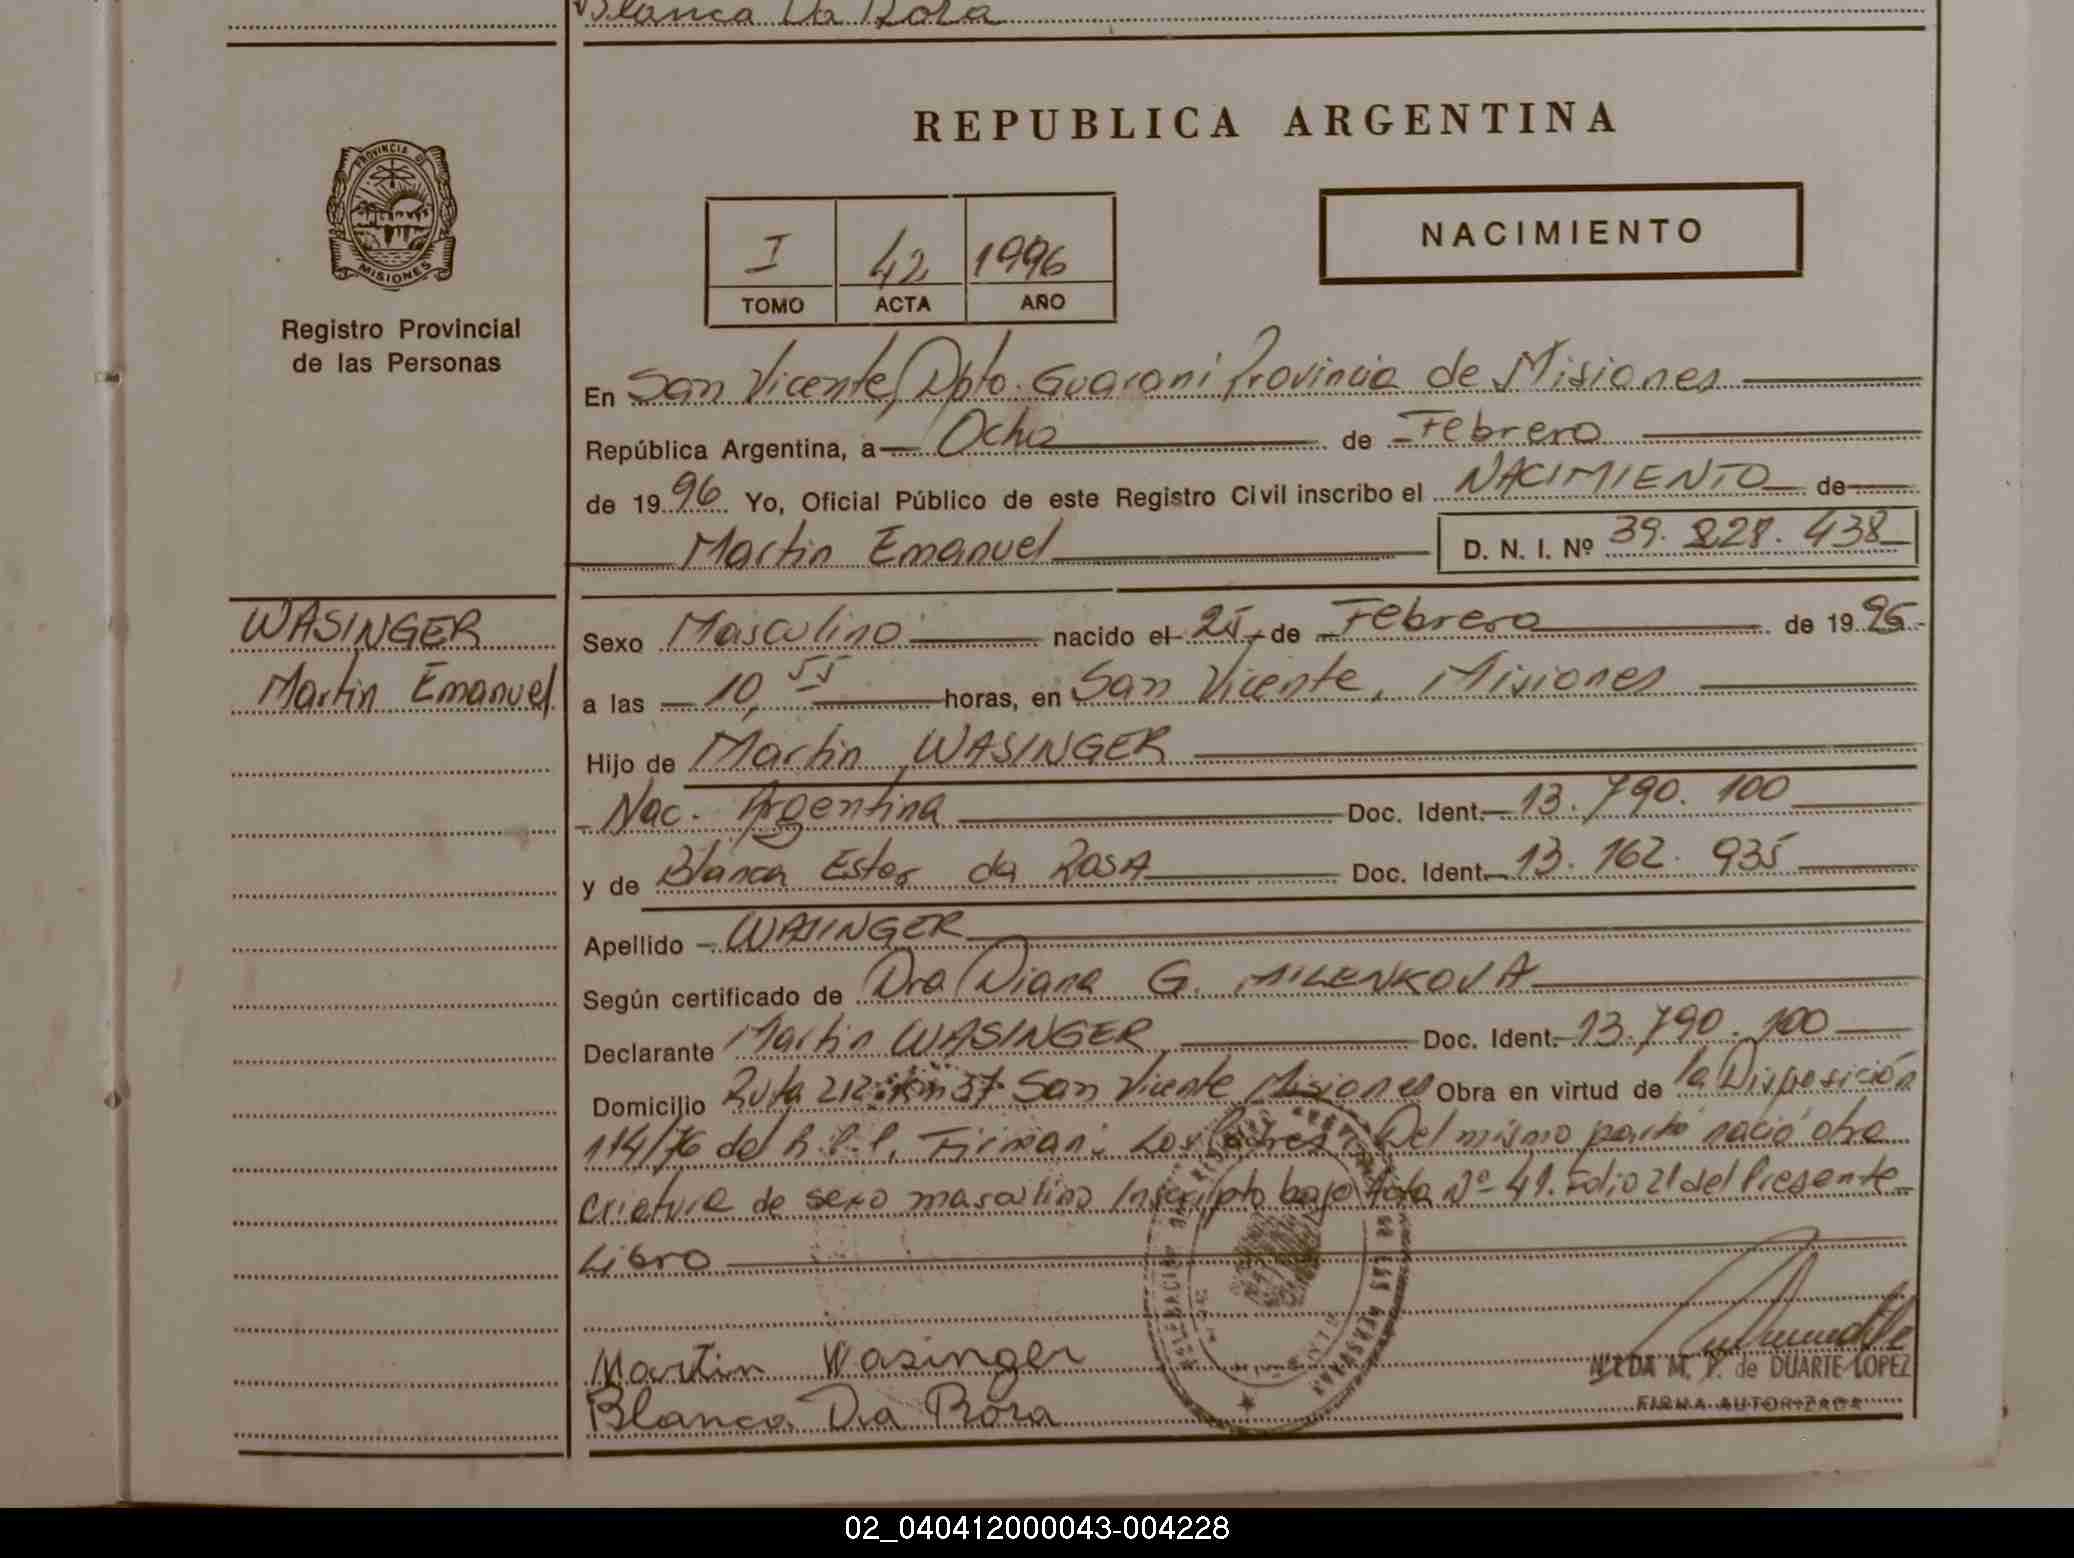 Blanca Da Roza
REPUBLICA ARGENTINA
PROVINCIA DE
MISIONES
Registro Provincial
de las Personas
I 42 1996
TOMO ACTA AÑO
NACIMIENTO
En San Vicente, Dpto. Guaraní Provincia de Misiones
República Argentina, a Ocho de Febrero
de 1996 Yo, Oficial Público de este Registro Civil inscribo el NACIMIENTO de
Martin Emanuel D. N. I. Nº 39.228.438
WASINGER
Martin Emanuel
Sexo Masculino nacido el 25 de Febrero de 1996
a las 10,55 horas, en San Vicente, Misiones
Hijo de Martin WASINGER
Nac. Argentina Doc. Ident. 13.790.100
y de Blanca Ester da ROSA Doc. Ident. 13.162.935
Apellido WASINGER
Según certificado de Dra Diana G. MILENKOVA
Declarante Martin WASINGER Doc. Ident. 13.790.100
Domicilio Ruta 212 Km 37 San Vicente Misiones Obra en virtud de la Disposición
114/76 del Firman: Los Padres. Del mismo parto nació otra
criatura de sexo masculino Inscripto bajo Acta Nº 41. Folio 21 del Presente
Libro
Martin Wasinger
Blanca Da Roza
NILDA M. P. de DUARTE LOPEZ
FIRMA AUTORIZADA
02_040412000043-004228